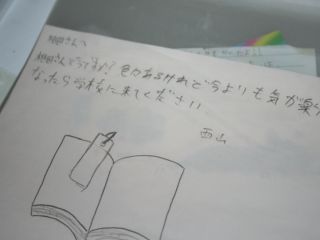 さんへ
さんどうですか? 色々あるけれど今よりも気が楽に
なったら学校に来てください
西山